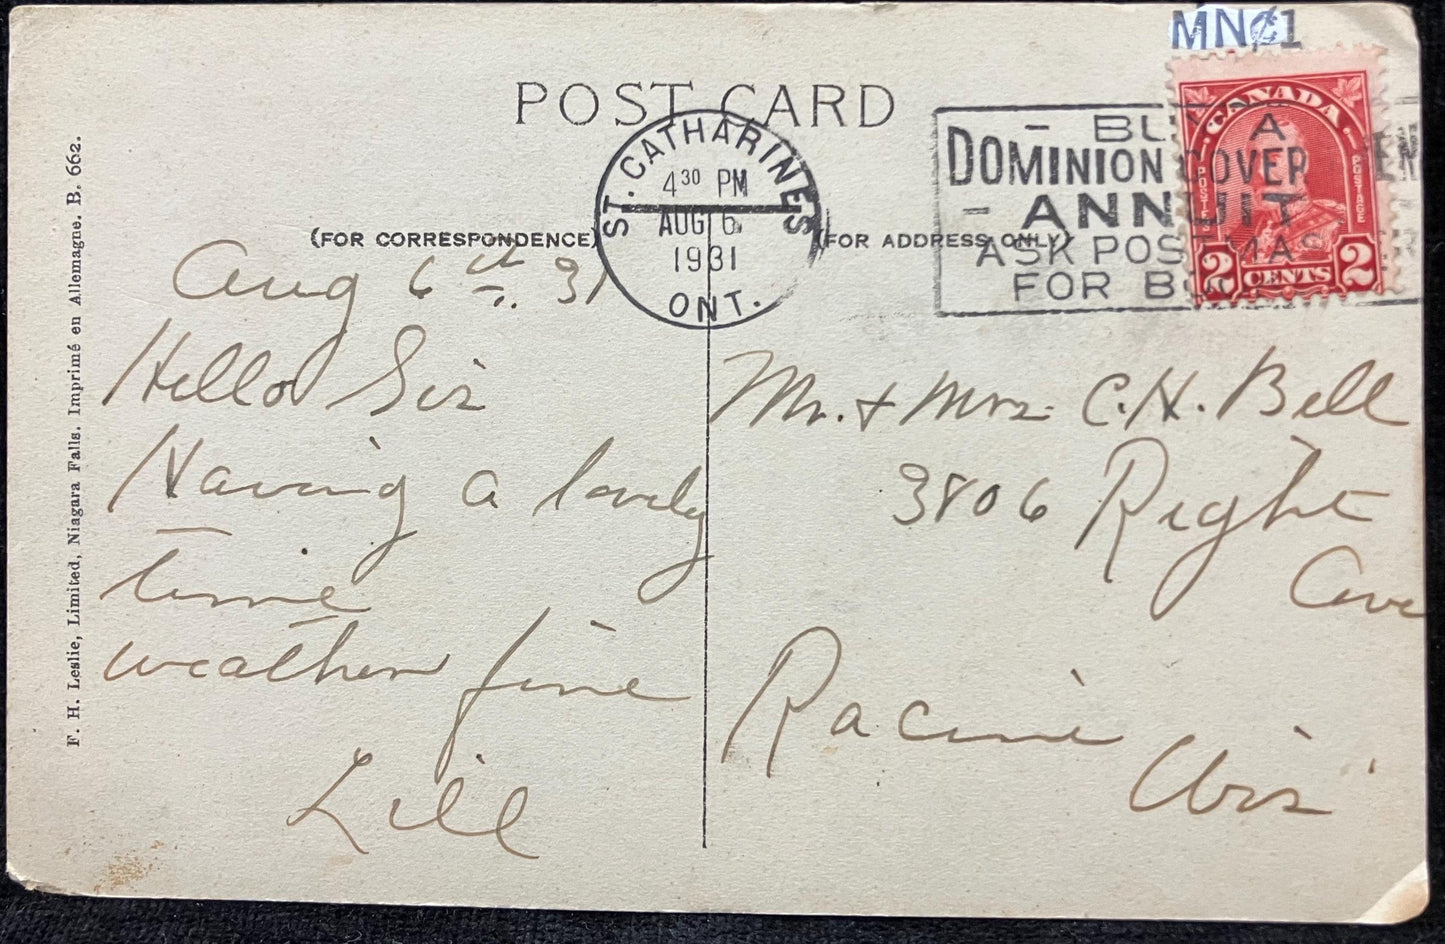 MN¢1
POST CARD
CANADA
POSTAGE
2 CENTS 2
ST. CATHARINES
4 30 PM
AUG 6
1931
ONT.
BUY A
DOMINION GOVER MEN
ANNUIT
ASK POSTMASTER
FOR BO
(FOR CORRESPONDENCE)
(FOR ADDRESS ONLY)
F. H. Leslie, Limited, Niagara Falls. Imprimé en Allemagne. B. 662.
Aug 6th. 31
Hello Sis
Having a lovely
time
weather fine
Lill
Mr. + Mrs. C. H. Bell
3806 Right
Ave
Racine
Wis